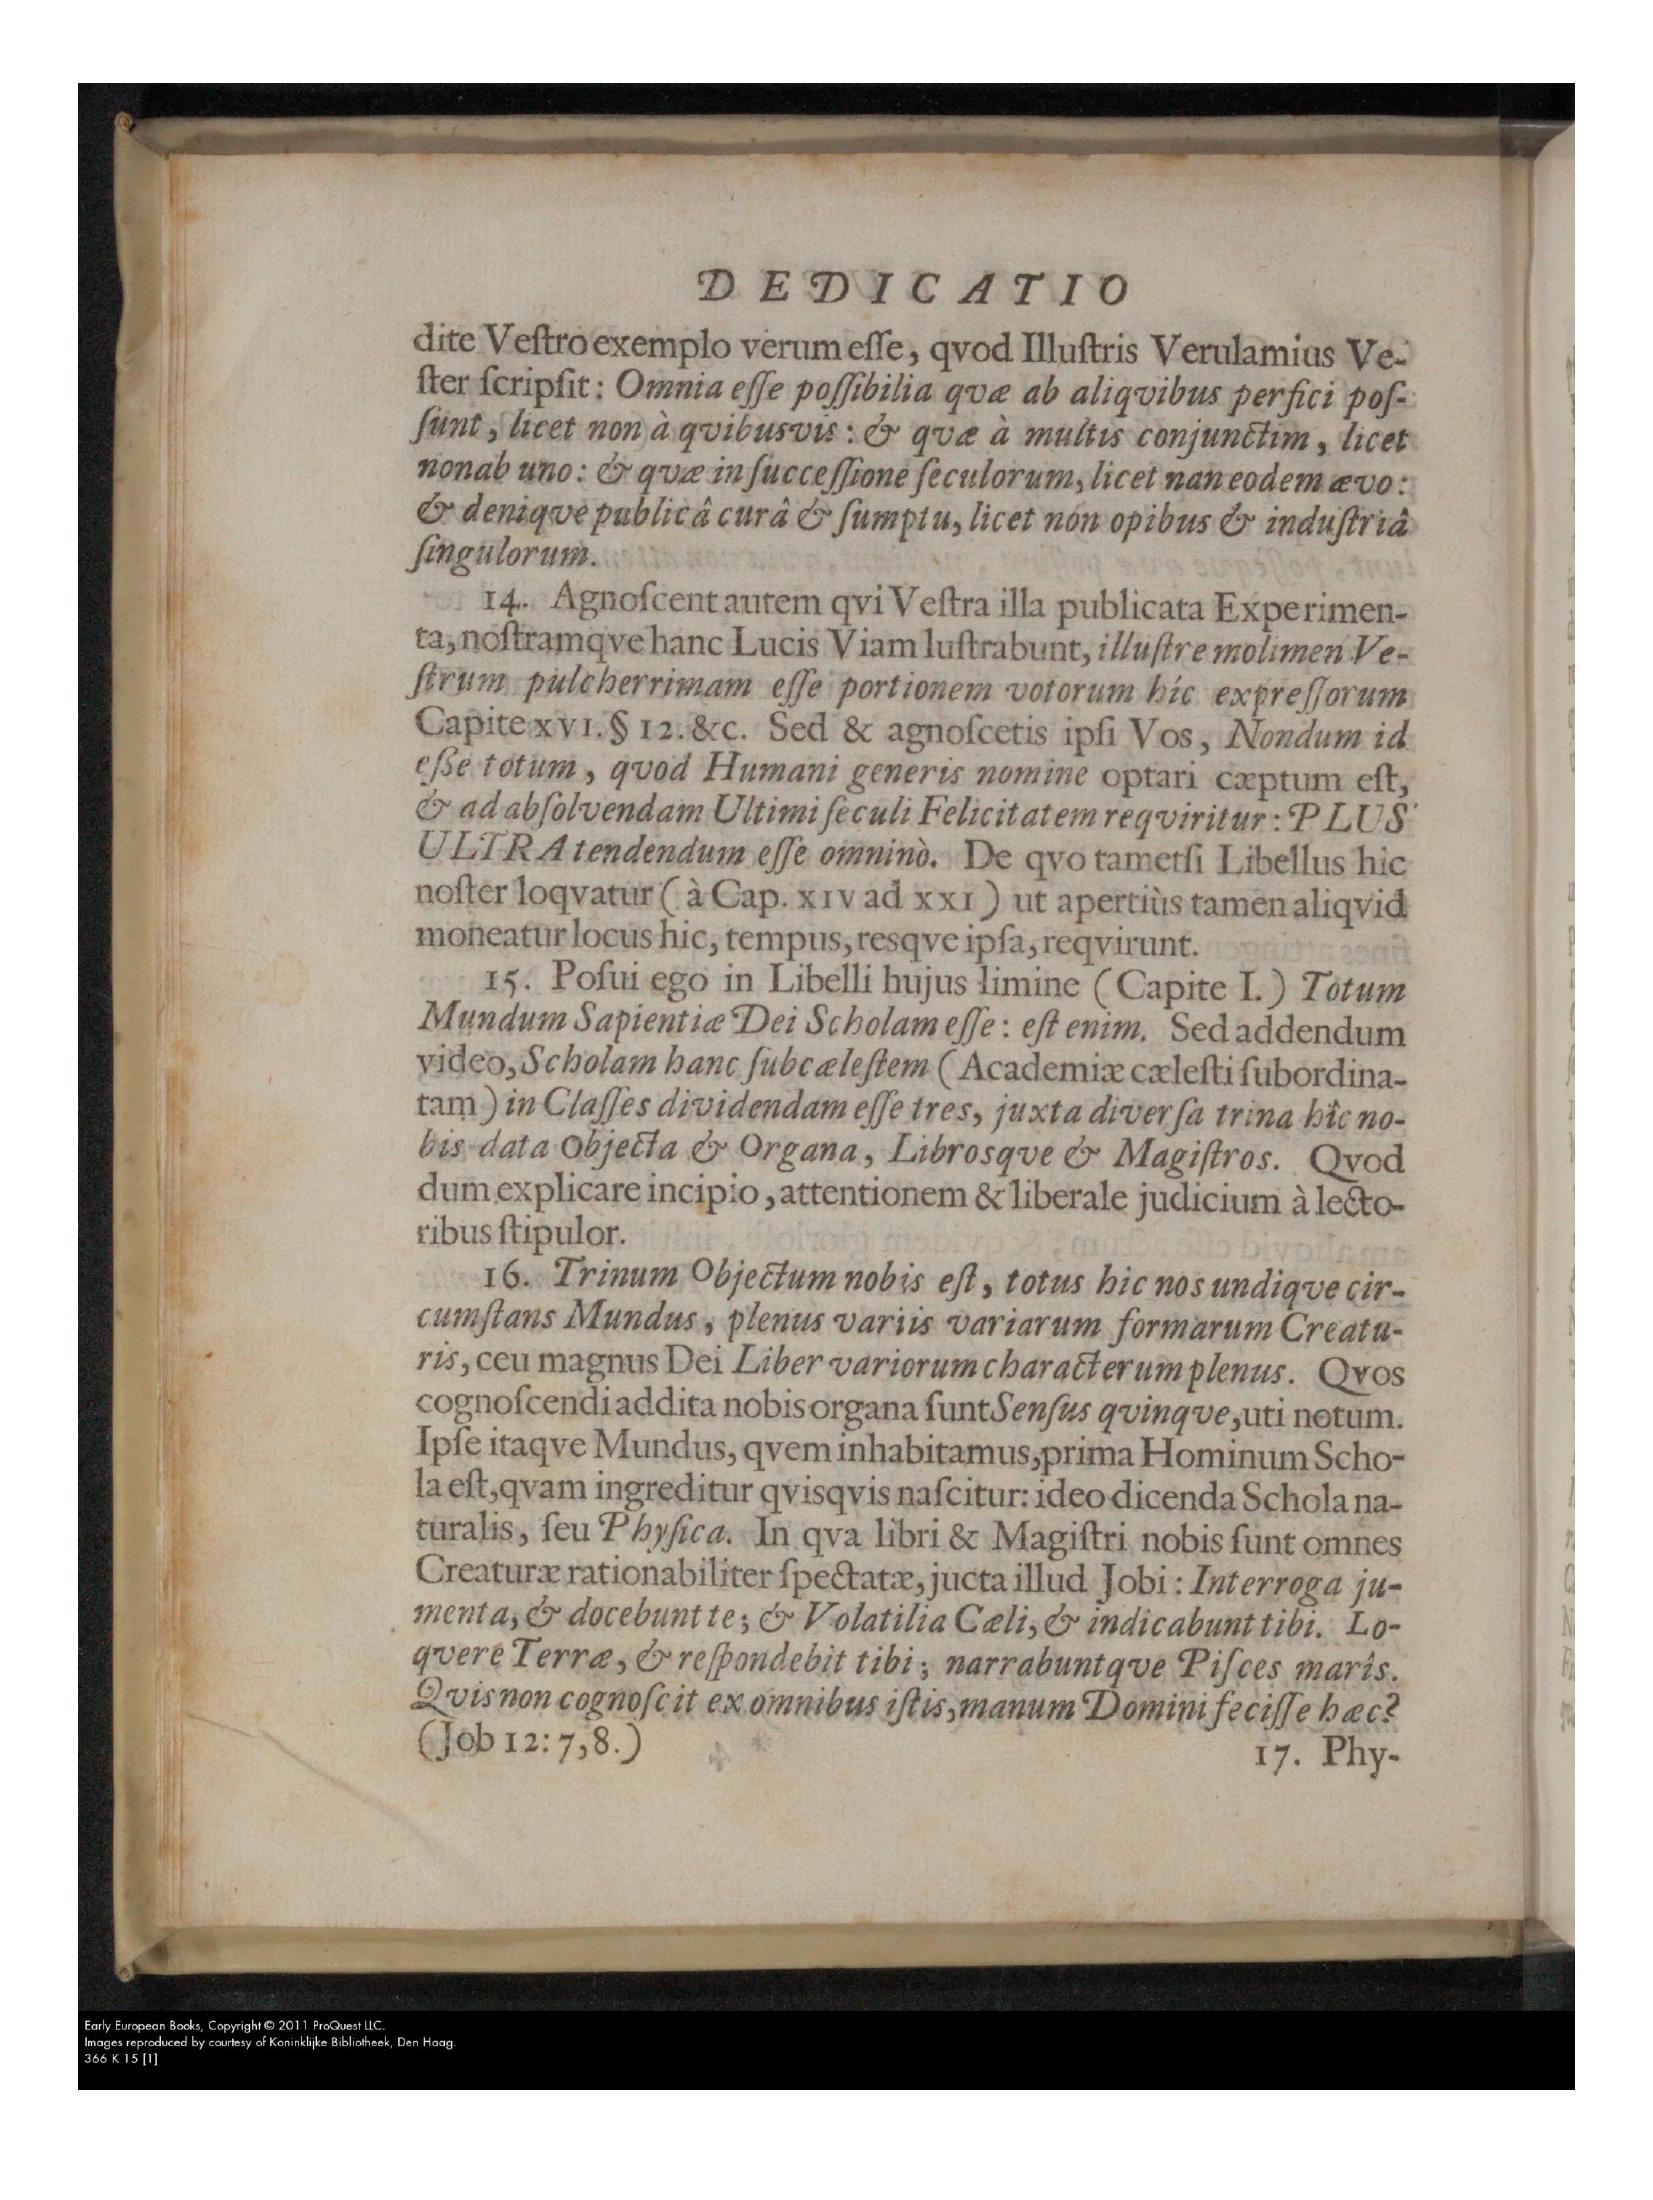 DEDICATIO
dite Veſtro exemplo verum eſſe, qvod Illuſtris Verulamius Ve-
ſter ſcripſit: Omnia eſſe poſſibilia qvæ ab aliqvibus perfici poſ-
ſunt, licet non à qvibusvis: & qvæ à multis conjunctim, licet
non ab uno: & qvæ in ſucceſſione ſeculorum, licet nan eodem ævo:
& deniqve publicâ curâ & ſumptu, licet non opibus & induſtriâ
ſingulorum.
14. Agnoſcent autem qvi Veſtra illa publicata Experimen-
ta, noſtramqve hanc Lucis Viam luſtrabunt, illuſtre molimen Ve-
ſtrum pulcherrimam eſſe portionem votorum hîc expreſſorum
Capite XVI. § 12. &c. Sed & agnoſcetis ipſi Vos, Nondum id
eſſe totum, quod Humani generis nomine optari cæptum eſt,
& ad abſolvendam Ultimi ſeculi Felicitatem reqviritur: PLUS
ULTRA tendendum eſſe omninò. De qvo tametſi Libellus hic
noſter loqvatur (à Cap. XIV ad XXI) ut apertiùs tamen aliqvid
moneatur locus hic, tempus, resqve ipſa, reqvirunt.
15. Poſui ego in Libelli hujus limine (Capite I.) Totum
Mundum Sapientiæ Dei Scholam eſſe: eſt enim. Sed addendum
video, Scholam hanc ſubcæleſtem (Academiæ cæleſti ſubordina-
tam) in Claſſes dividendam eſſe tres, juxta diverſa trina hîc no-
bis data Objecta & Organa, Librosqve & Magiſtros. Qvod
dum explicare incipio, attentionem & liberale judicium à lecto-
ribus ſtipulor.
16. Trinum Objectum nobis eſt, totus hic nos undiqve cir-
cumſtans Mundus, plenus variis variarum formarum Creatu-
ris, ceu magnus Dei Liber variorum characterum plenus. Qvos
cognoſcendi addita nobis organa ſunt Senſus qvinqve, uti notum.
Ipſe itaqve Mundus, qvem inhabitamus, prima Hominum Scho-
la eſt, qvam ingreditur qvisqvis naſcitur: ideo dicenda Schola na-
turalis, ſeu Phyſica. In qva libri & Magiſtri nobis ſunt omnes
Creaturæ rationabiliter ſpectatæ, jucta illud Jobi: Interroga ju-
menta, & docebunt te; & Volatilia Cæli, & indicabunt tibi. Lo-
qvere Terræ, & reſpondebit tibi; narrabuntqve Piſces maris.
Qvis non cognoſcit ex omnibus iſtis, manum Domini feciſſe hæc?
(Job 12: 7, 8.)
17. Phy-
Early European Books, Copyright © 2011 ProQuest LLC.
Images reproduced by courtesy of Koninklijke Bibliotheek, Den Haag.
366 K 15 [1]